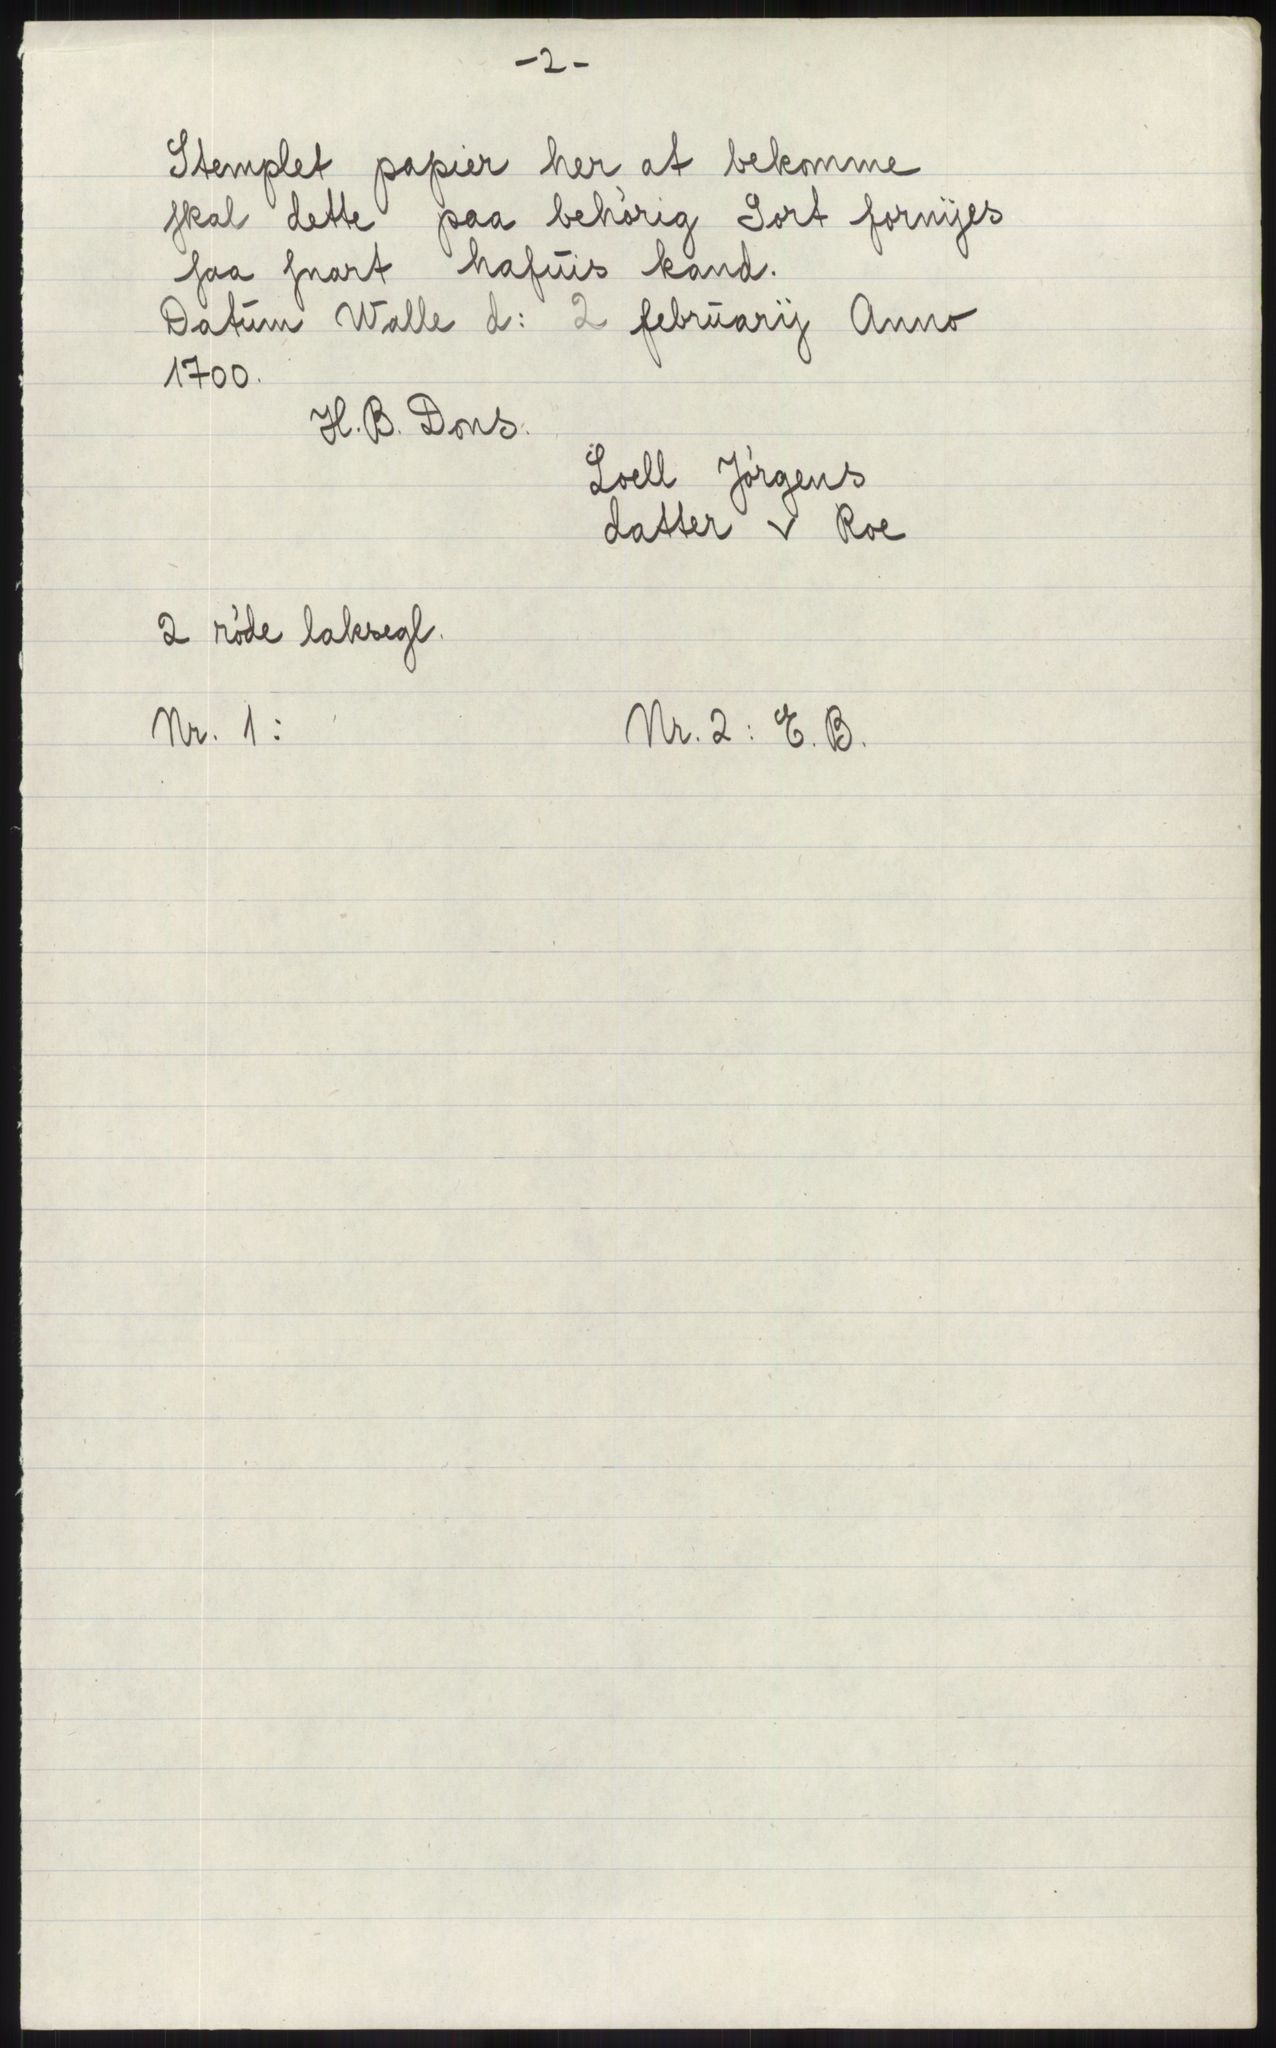 -2-
Stemplet papier her at bekomme
skal dette paa behörig Sort fornijes
saa snart hafuis kand.
Datum Walle d: 2 februarij Anno
1700.
H. B. Dons.
Loell Jörgens
datter v Roe
2 röde laksegl.
Nr. 1: Nr. 2: E. B.